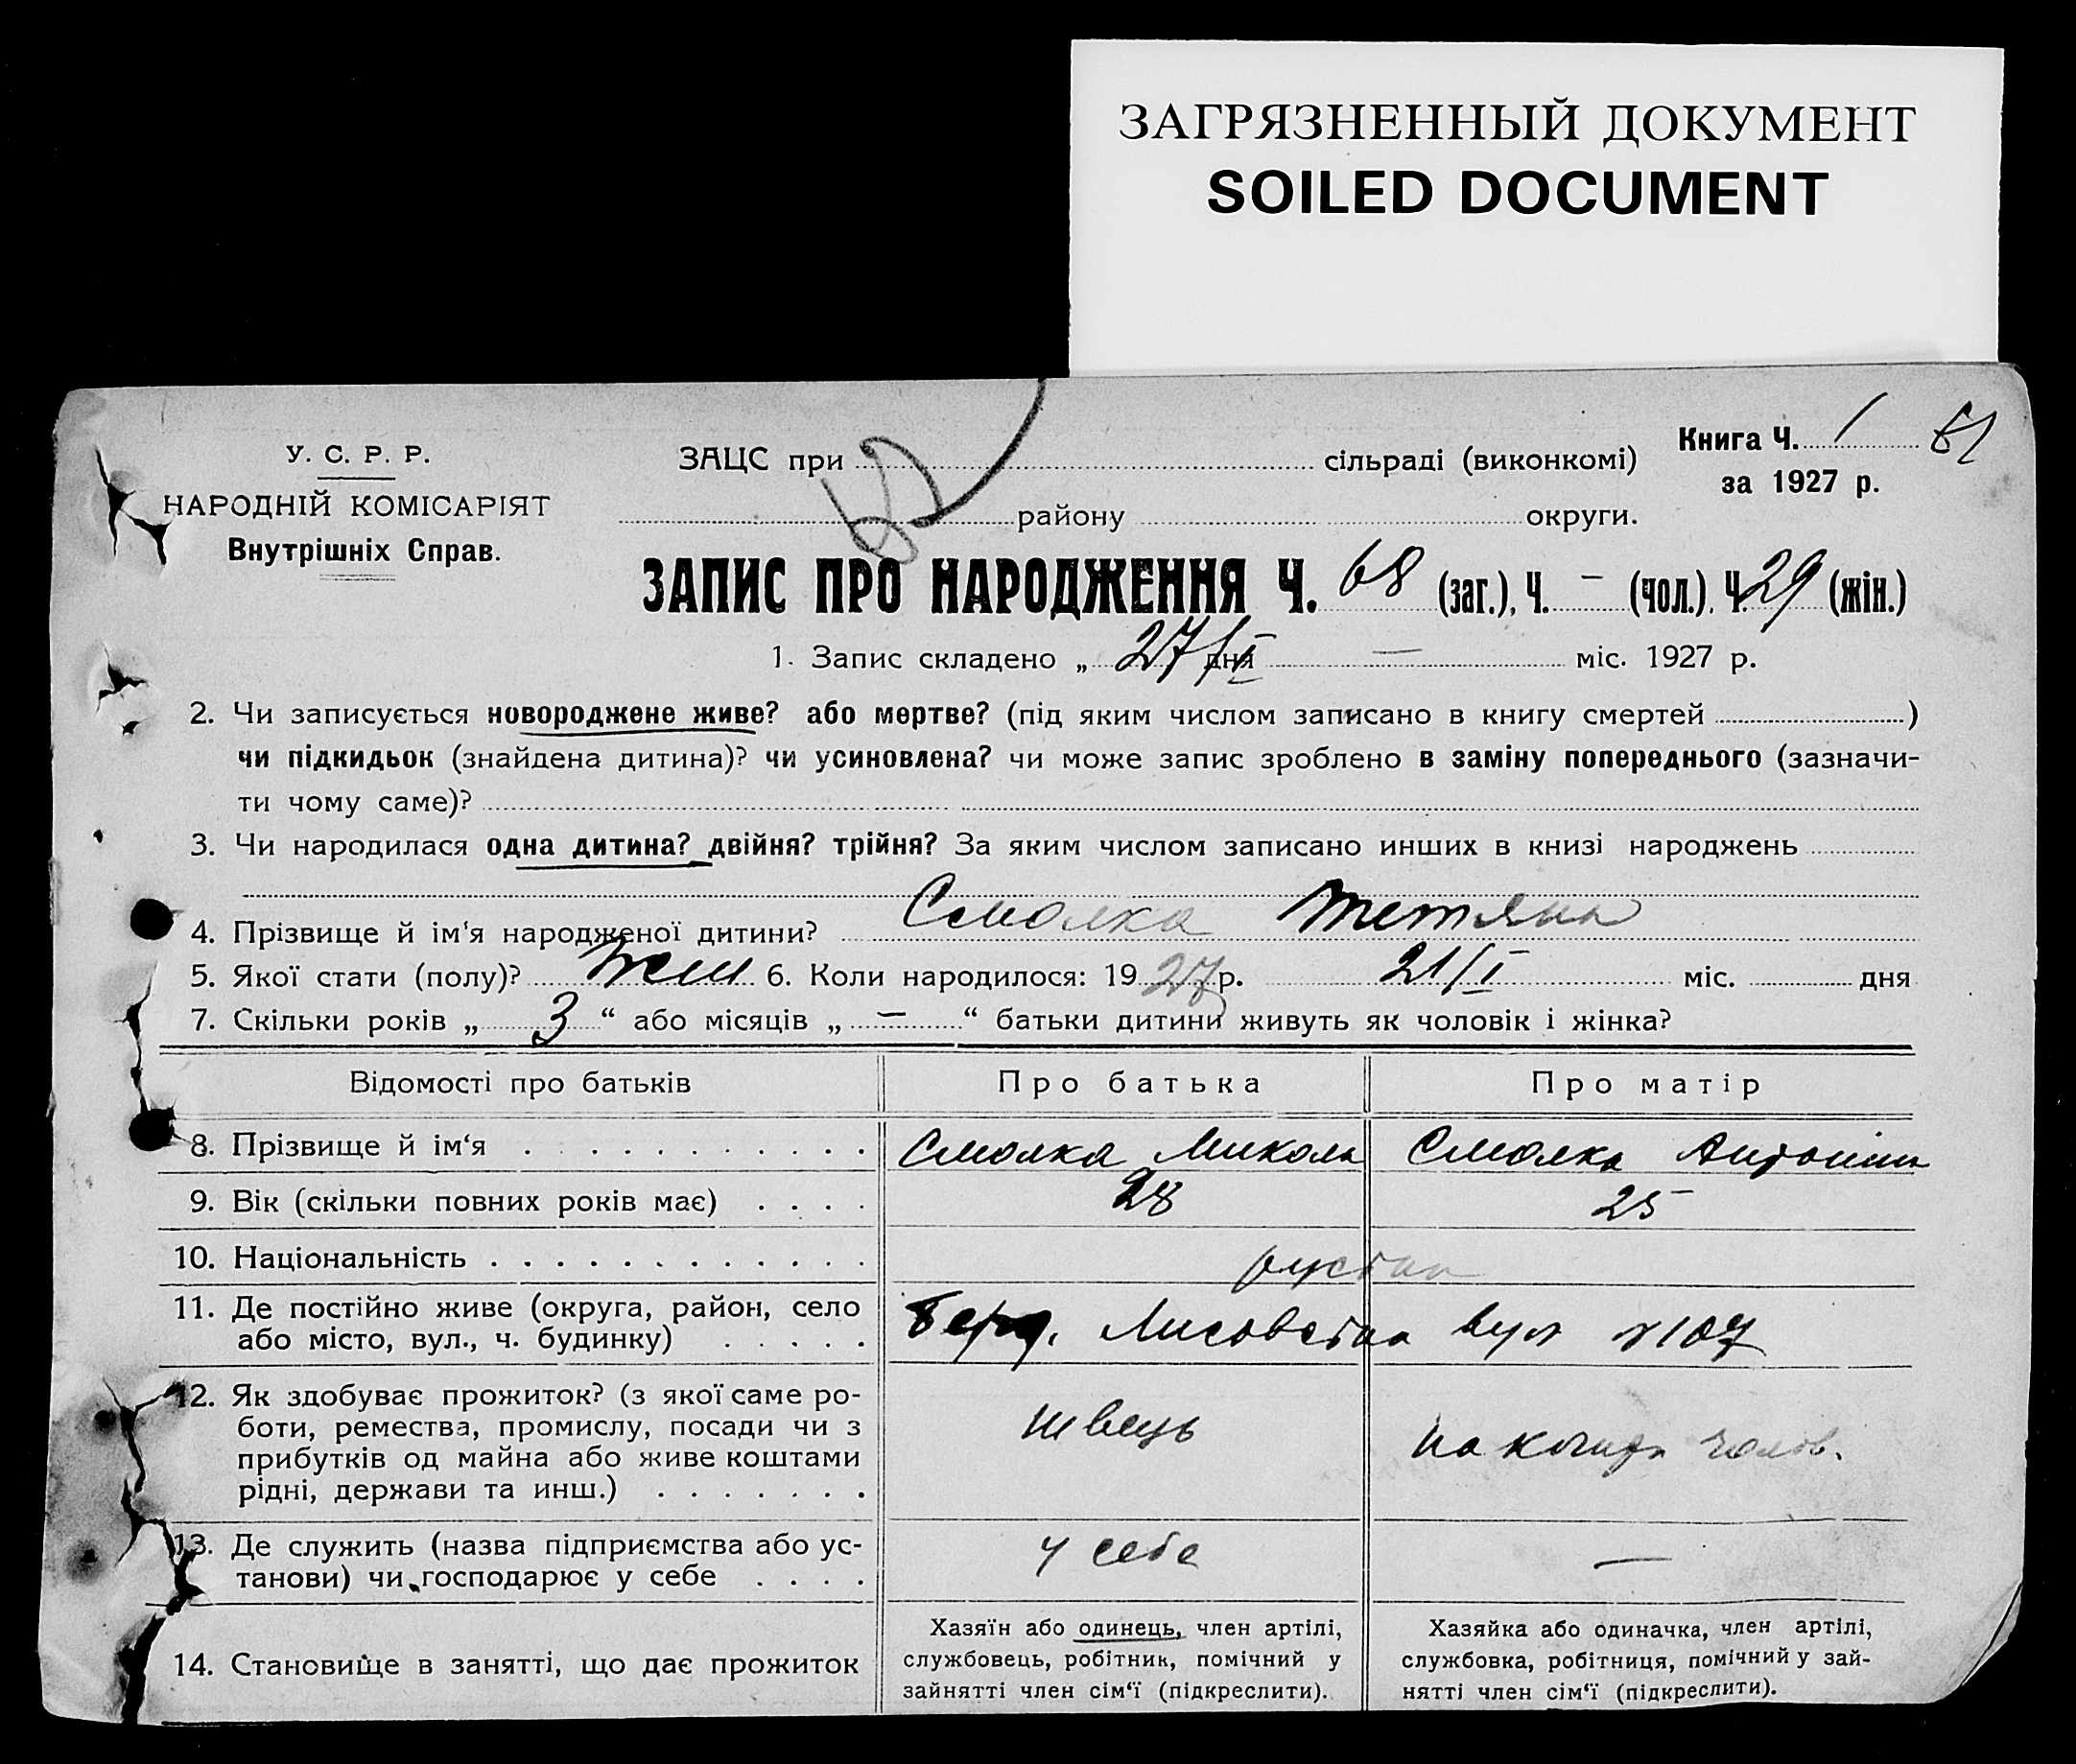 ЗАГРЯЗНЕННЫЙ ДОКУМЕНТ
SOILED DOCUMENT
У. С. Р. Р.
НАРОДНІЙ КОМІСАРІЯТ
Внутрішніх Справ.
ЗАЦС при сільраді (виконкомі)
району округи.
Книга Ч. 1
за 1927 р.
ЗАПИС ПРО НАРОДЖЕННЯ Ч. 68 (заг.), Ч. – (чол.). Ч. 29 (жін.)
1. Запис складено „ 27/I дня — міс. 1927 р.
2. Чи записується новороджене живе? або мертве? (під яким числом записано в книгу смертей )
чи підкидьок (знайдена дитина)? чи усиновлена? чи може запис зроблено в заміну попереднього (зазначи-
ти чому саме)?
3. Чи народилася одна дитина? двійня? трійня? За яким числом записано инших в книзі народжень
4. Прізвище й ім'я народженої дитини? Смолка Тетяна
5. Якої стати (полу)? Жін 6. Коли народилося: 1927 р. 21/I міс. дня
7. Скільки років „ 3 “ або місяців „ — “ батьки дитини живуть як чоловік і жінка?
Відомості про батьків Про батька Про матір
8. Прізвище й ім'я Смолка Микола Смолка Антоніна
9. Вік (скільки повних років має) 28 25
10. Національність
11. Де постійно живе (округа, район, село
або місто, вул., ч. будинку)
Лисовська вул 107
12. Як здобуває прожиток? (з якої саме ро-
боти, ремества, промислу, посади чи з
прибутків од майна або живе коштами
рідні, держави та инш.)
швець
на кошти чолов.
13. Де служить (назва підприємства або ус-
танови) чи господарює у себе
у себе —
14. Становище в занятті, що дає прожиток
Хазяїн або одинець, член артілі,
службовець, робітник, помічний у
зайнятті член сім'ї (підкреслити).
Хазяйка або одиначка, член артілі,
службовка, робітниця, помічний у зай-
нятті член сім'ї (підкреслити).